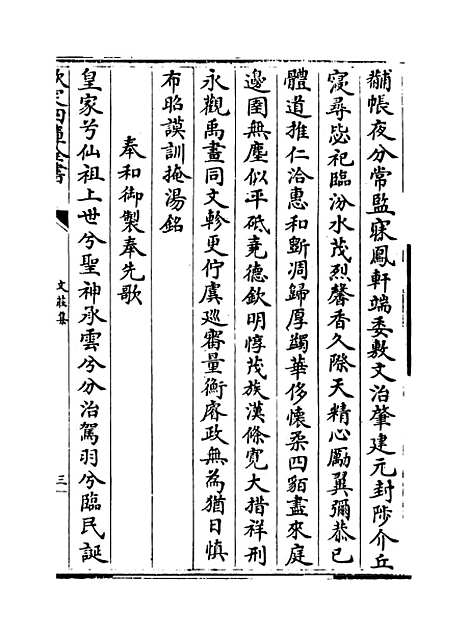 黼帳夜分常監寐鳳軒端委敷文治肇建元封陟介丘
寔尋毖祀臨汾水茂烈馨香久際天精心勵翼彌恭已
體道推仁洽惠和斵凋歸厚蠲華侈懷柔四貊盡來庭
邊圉無塵似平砥堯德欽明惇茂族漢條寛大措祥刑
永觀禹畫同文軫更佇虞廵審量衡睿政無為猶日慎
布昭謨訓掩湯銘
奉和御製奉先歌
皇家兮仙祖上世兮聖神承雲兮分治駕羽兮臨民誕
欽定四庫全書
文莊集
三